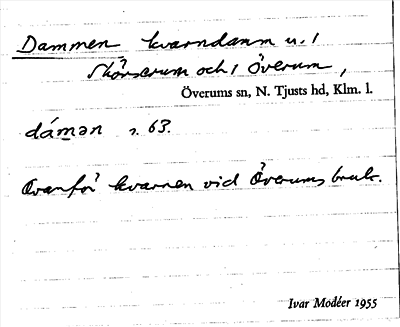 Dammen kvarndamm u. 1
Skörserum och 1 Överum,
Överums sn, N. Tjusts hd, Klm. l.
dámən s. 63.
Ovanför kvarnen vid Överums bruk.
Ivar Modéer 1955